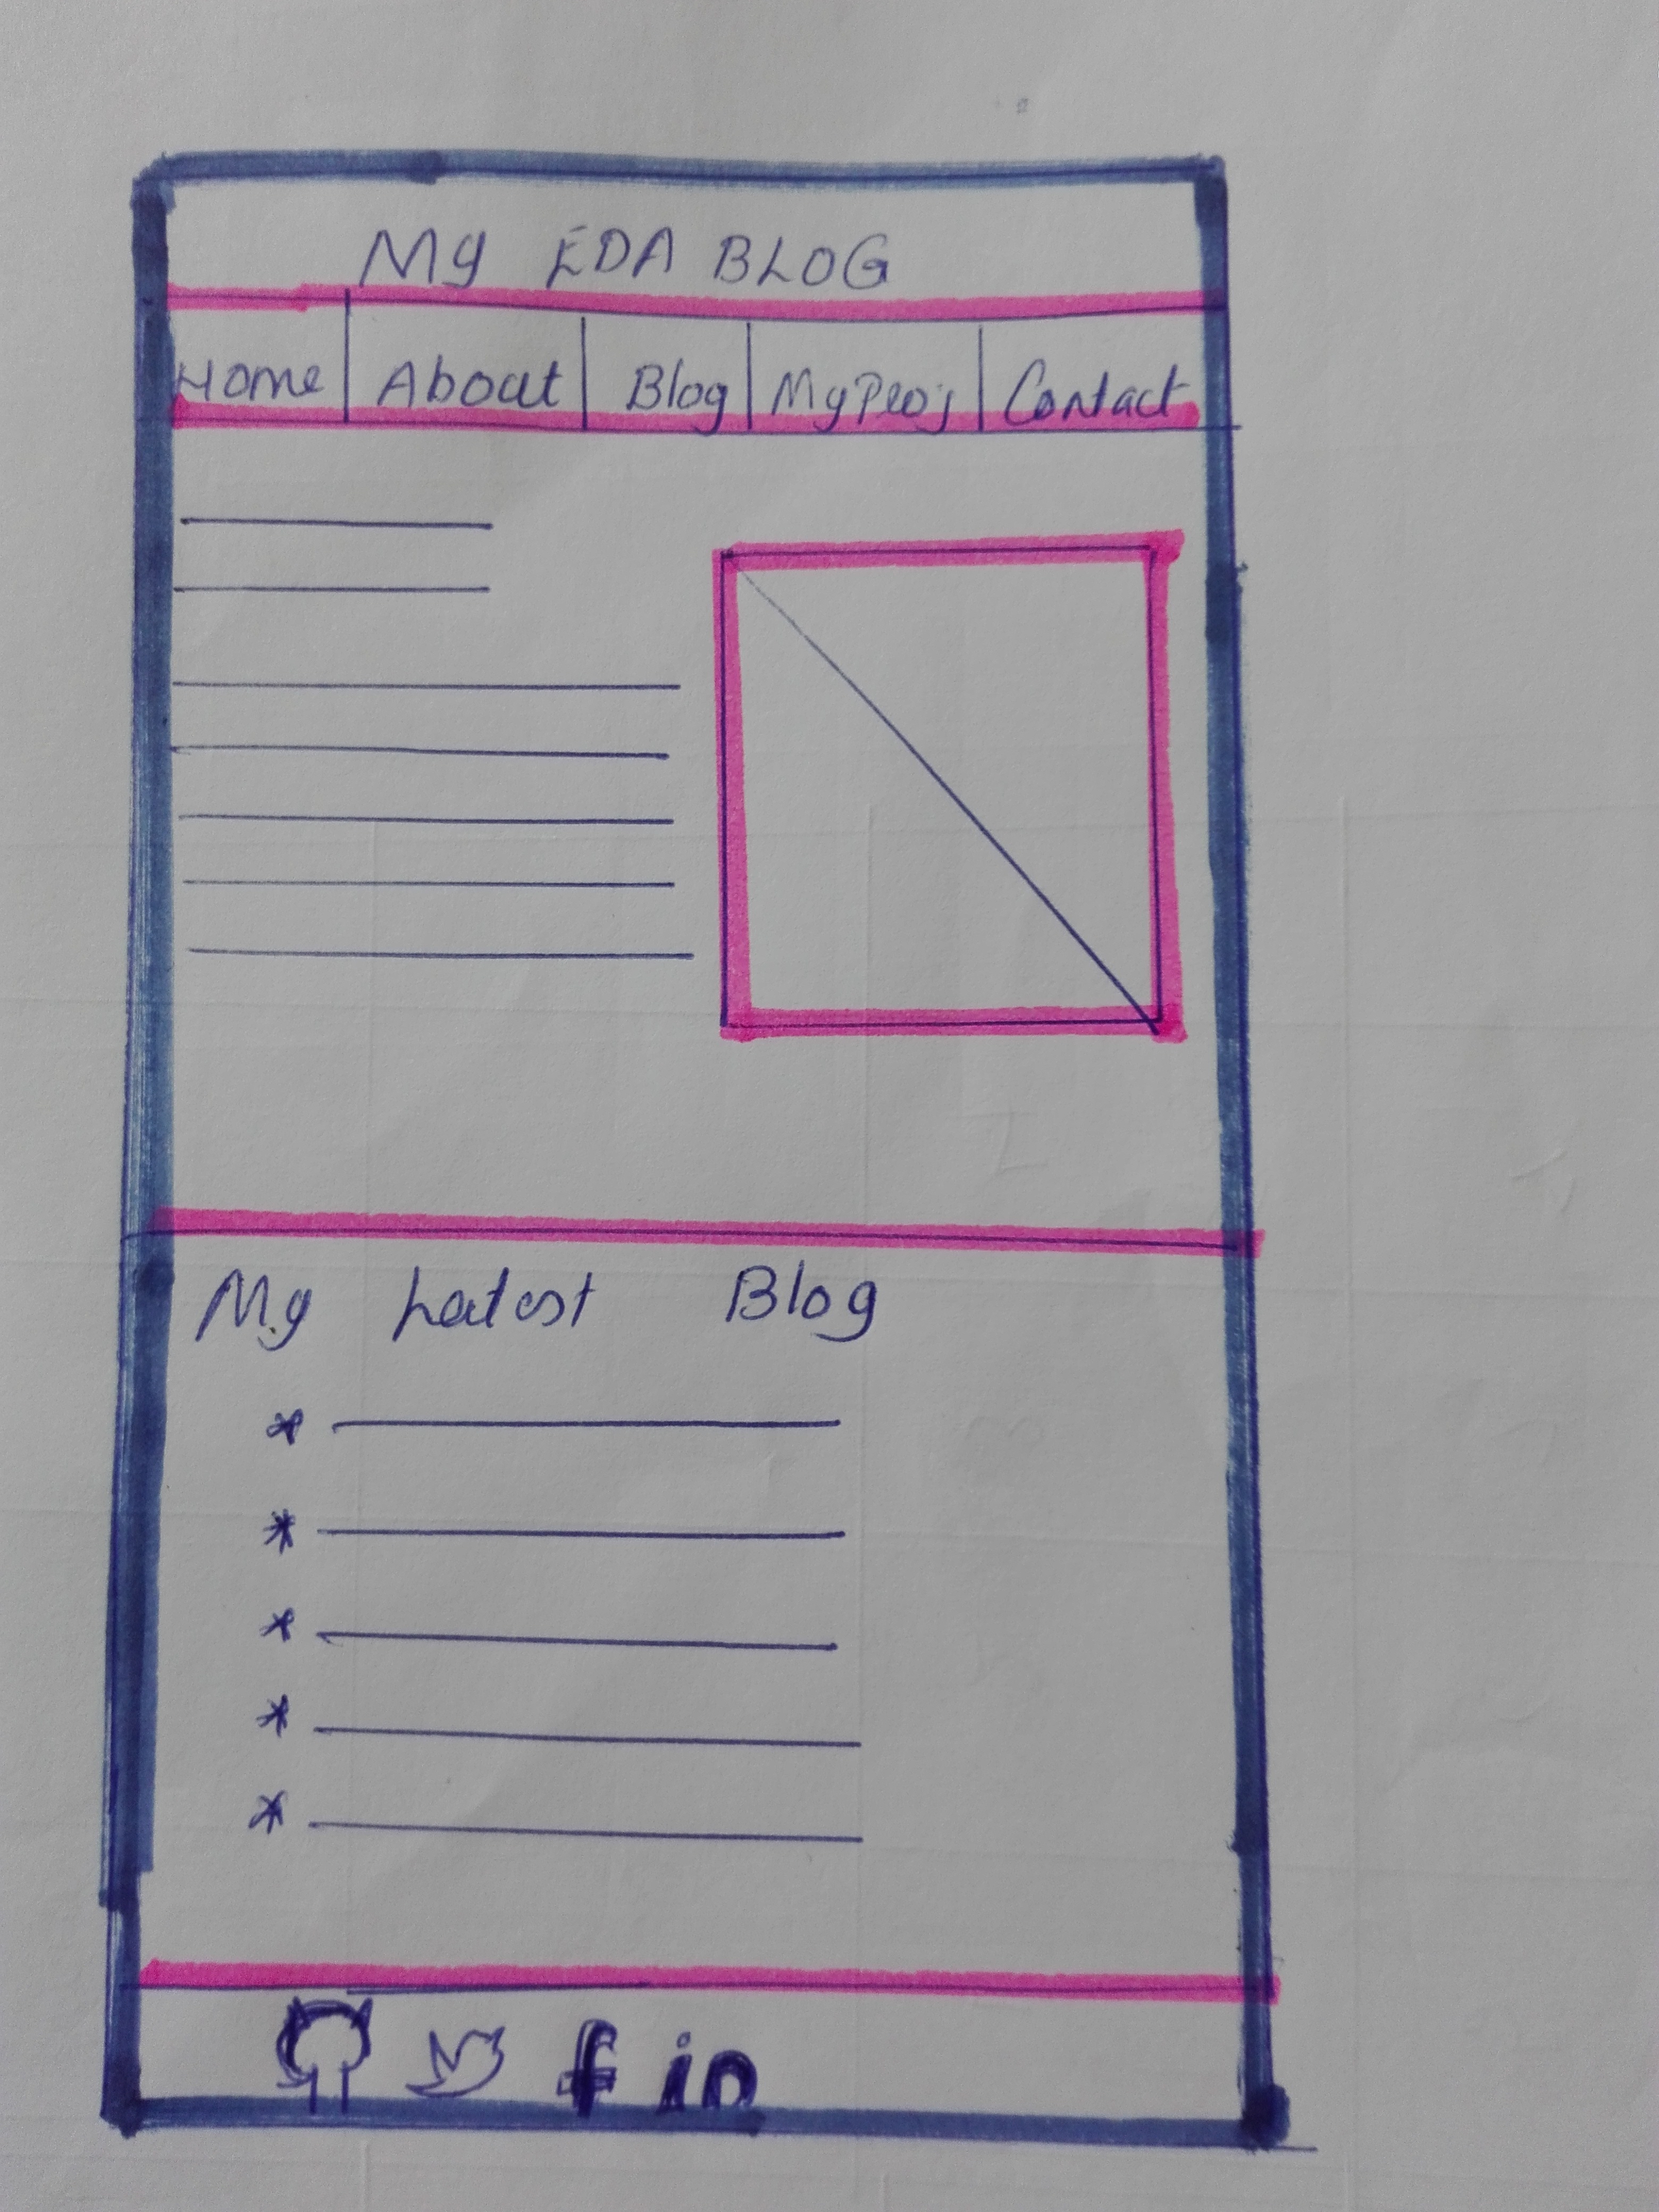 My EDA BLOG
Home About Blog MyProj Contact
My Latest Blog
*
*
*
*
*
f in